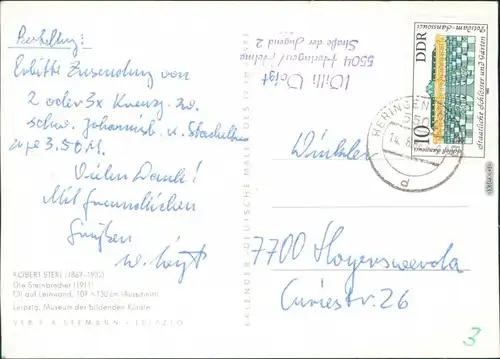 Bestellung:
Erbitte Zusendung von
2 oder 3x Kreuz- zw.
schw. Johannisb. u. Stachelb.
zu je 3.50 M.
Vielen Dank!
Mit freundlichen
Grüßen
W. Voigt
ROBERT STERL (1867-1932)
Die Steinbrecher (1911)
Öl auf Leinwand, 109 × 130 cm (Ausschnitt)
Leipzig, Museum der bildenden Künste
VEB E. A. SEEMANN · LEIPZIG
KALENDER DEUTSCHE MALER DES
Willi Voigt
5504 Heringen/Helme
Straße der Jugend 2
DDR
10
Potsdam-Sanssouci
Staatliche Schlösser und Gärten
HERINGEN
Winkler
7700 Hoyerswerda
Curiestr. 26
3